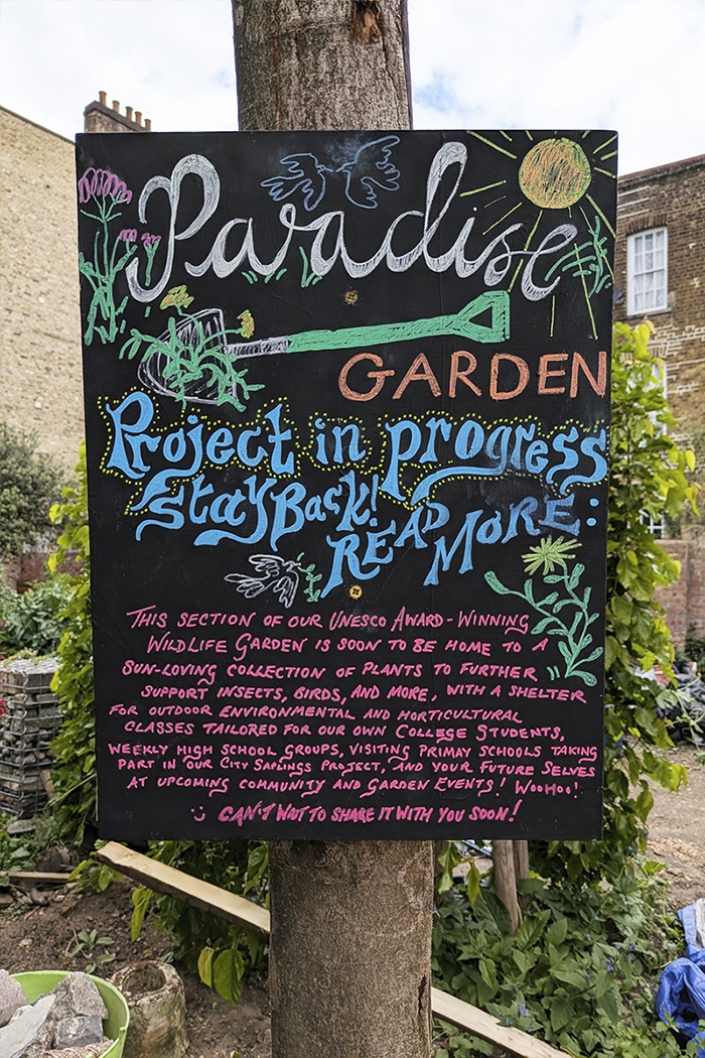 Paradise
GARDEN
Project in progress
Stay Back!
READ MORE:
THIS SECTION OF OUR UNESCO AWARD-WINNING
WILDLIFE GARDEN IS SOON TO BE HOME TO A
SUN-LOVING COLLECTION OF PLANTS TO FURTHER
SUPPORT INSECTS, BIRDS, AND MORE, WITH A SHELTER
FOR OUTDOOR ENVIRONMENTAL AND HORTICULTURAL
CLASSES TAILORED FOR OUR OWN COLLEGE STUDENTS,
WEEKLY HIGH SCHOOL GROUPS, VISITING PRIMAY SCHOOLS TAKING
PART IN OUR CITY SAPLINGS PROJECT, AND YOUR FUTURE SELVES
AT UPCOMING COMMUNITY AND GARDEN EVENTS! WOOHOO!
CAN'T WAIT TO SHARE IT WITH YOU SOON!